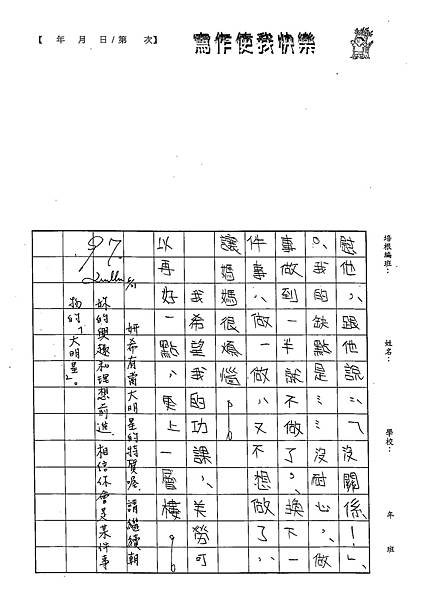 【 年 月 日/第 次】
寫作使我快樂
培根編班：
姓名：
學校：
年 班
慰他，跟他說：「沒關係！」
。我的缺點是：沒耐心，一做
事做到一半就不做了，換下一
件事，做一做，又不想做了，
讓媽媽很煩惱。
我希望我的功課，美勞可
以再好一點，更上一層樓。
妍希有當大明星的特質喔，請繼續朝
妳的興趣和理想前進，相信你會是某件事
物的「大明星」。
97